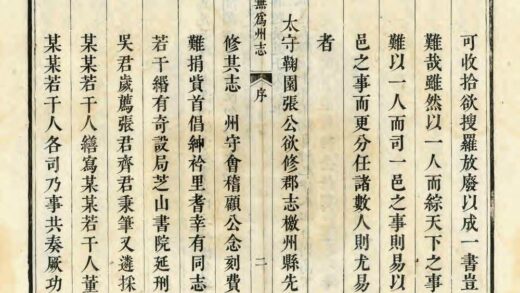 可收拾欲搜羅放廢以成一書豈
難哉雖然以一人而綜天下之事
難以一人而司一邑之事則易以
邑之事而更分任諸數人則尤易
者
太守鞠園張公欲修郡志檄州縣先
無爲州志 序 二
修其志 州守會稽顧公念刻費
難捐貲首倡紳衿里耆幸有同志
若干緡有奇設局芝山書院延刑
吳君歲薦張君齊君秉筆又遴採
某某若干人繕寫某某若干人董
某某若干人各司乃事共奏厥功